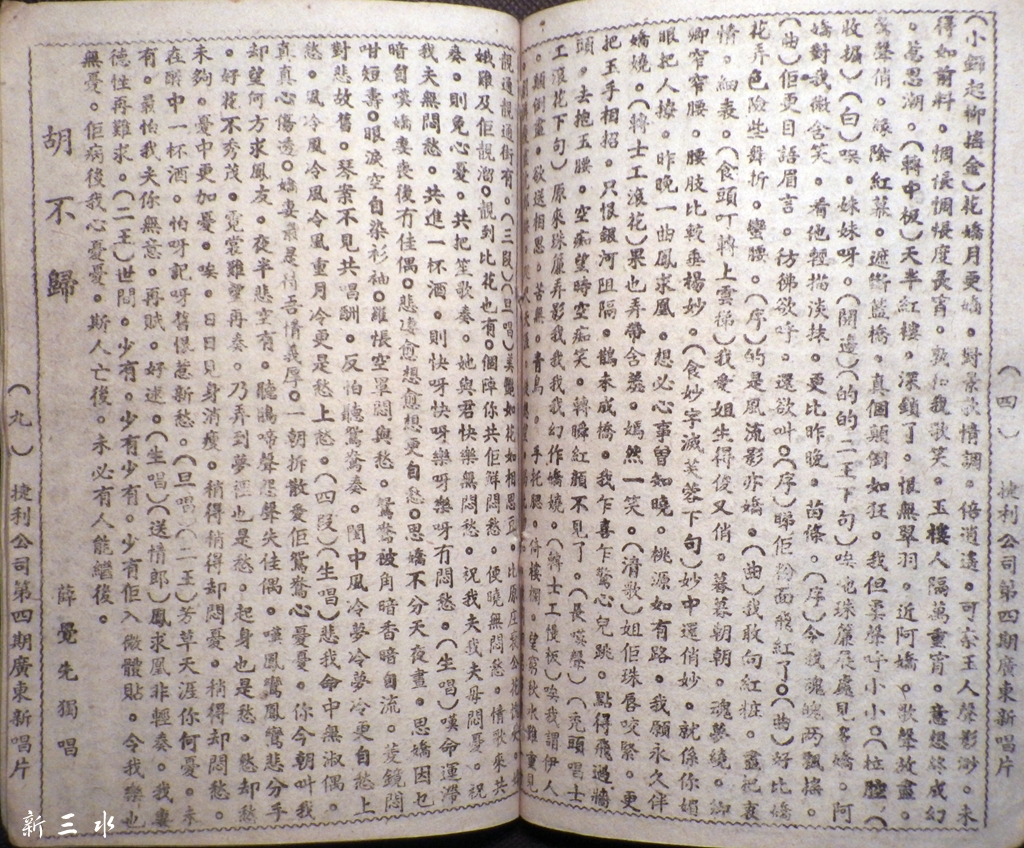 (四) 捷利公司第四期廣東新唱片
(小鋼起柳搖金)花嬌月更嬌。對景歌情調。倍逍遙。可奈玉人聲影渺。未
得如前料。惆悵惆悵度長宵。孰和我歌笑。玉樓人隔萬重霄。意想終成幻
。惹思潮。(轉中板)天半紅樓。深鎖了。恨無翠羽。近阿嬌。歌聲放盡。
聲聲俏。綠陰紅幕。遮斷藍橋。真個顛倒如狂。我但柔聲呼小小。(拉腔)(
收據)(白)唉。妹妹呀。(開邊)(的的二王下句)唉吔珠簾展處見多嬌。阿
嬌對我微含笑。看他輕描淡抹。更比昨晚。苗條。(序)令我魂魄兩飄搖。
(曲)佢更目語眉言。彷彿欲呼。還欲叫。(序)睇佢粉面飛紅了。(曲)好比嬌
花弄色險些舜折。蠻腰。(序)的是風流影亦嬌。(曲)我敢向紅粧。盡訴衷
情。細表。(食頭叮轉上雲梯)我愛姐生得俊又俏。暮暮朝朝。魂夢繞。柳
腳窄窄腰。腰肢比較垂楊妙。(食妙字滅芙蓉下句)妙中還俏妙。就係你媚
眼把人撩。昨晚一曲鳳求凰。想必心事曾知曉。桃源如有路。我願永久伴
嬌嬈。(轉士工滾花)果也弄帶含羞。嫣然一笑。(清歌)姐佢珠唇咬緊。更
把玉手相招。只恨銀河阻隔。鵲未成橋。我乍喜乍驚心兒跳。點得飛過牆
頭。去抱玉腰。空痴望時空痴笑。轉瞬紅顏不見了。(長嘆聲)(禿頭唱士
工滾花下句)原來珠簾弄影我我我幻作嬌嬈。(轉士工慢板)唉我謂伊人
。顛倒盡。欲送相思。苦無。青鳥。手托腮。倚樓欄。望窮秋水難重見
靚通靚通街有。(三段)(旦唱)美艷如花如相思
娥雖及佢靚溜。靚到比花也有。個陣你共佢解悶愁。便曉無悶愁。情歌來共
奏。則免心憂。共把笙歌奏。她與君快樂無悶愁。祝我夫我夫毋悶憂。祝
我夫無悶愁。共進一杯酒。則快呀快呀樂呀樂呀有悶愁。(生唱)嘆命運滯
暗自嘆嬌妻喪後有佳偶。悲違愈想愈想更自愁。思嬌不分天夜晝。思嬌因乜
咁短壽。眼淚空自染衫袖。羅悵空單悶與愁。鴛鴦被角暗香暗自流。菱鏡悶
對悲故舊。琴案不見共唱酬。反怕聽驚鴦奏。閨中風冷夢冷夢冷更自愁上
愁。風冷風冷風冷風重月冷更是愁上愁。(四段)(生唱)悲我命中無淑偶。
真真心傷透。嬌妻最是情吾情義厚。一朝拆散愛侶鴛鴦心憂憂。你今朝叫我
却望何方求鳳友。夜半悲空有。聽鵑啼聲怨聲失佳偶。嘆鳳鸞鳳鸞悲分手
。好花不秀茂。霓裳難望再奏。乃弄到夢裡也是愁。起身也是愁。愁却愁
未夠。憂中更加憂。唉。日日見身消瘦。稍得稍得却悶憂。稍得却悶愁。
在醉中一杯酒。怕呀記呀舊恨惹新愁。(旦唱)(二王)芳草天涯你何憂。未
有。最怕我夫你無意。再賦。好逑。(生唱)(送情郎)鳳求凰非輕奏。我妻
德性再難求。(二王)世間。少有。少有少有。少有佢入微體貼。令我樂也
無憂。佢病後我心憂憂。斯人亡後。未必有人能繼後。
胡不歸 薛覺先獨唱
(九) 捷利公司第四期廣東新唱片
新三水